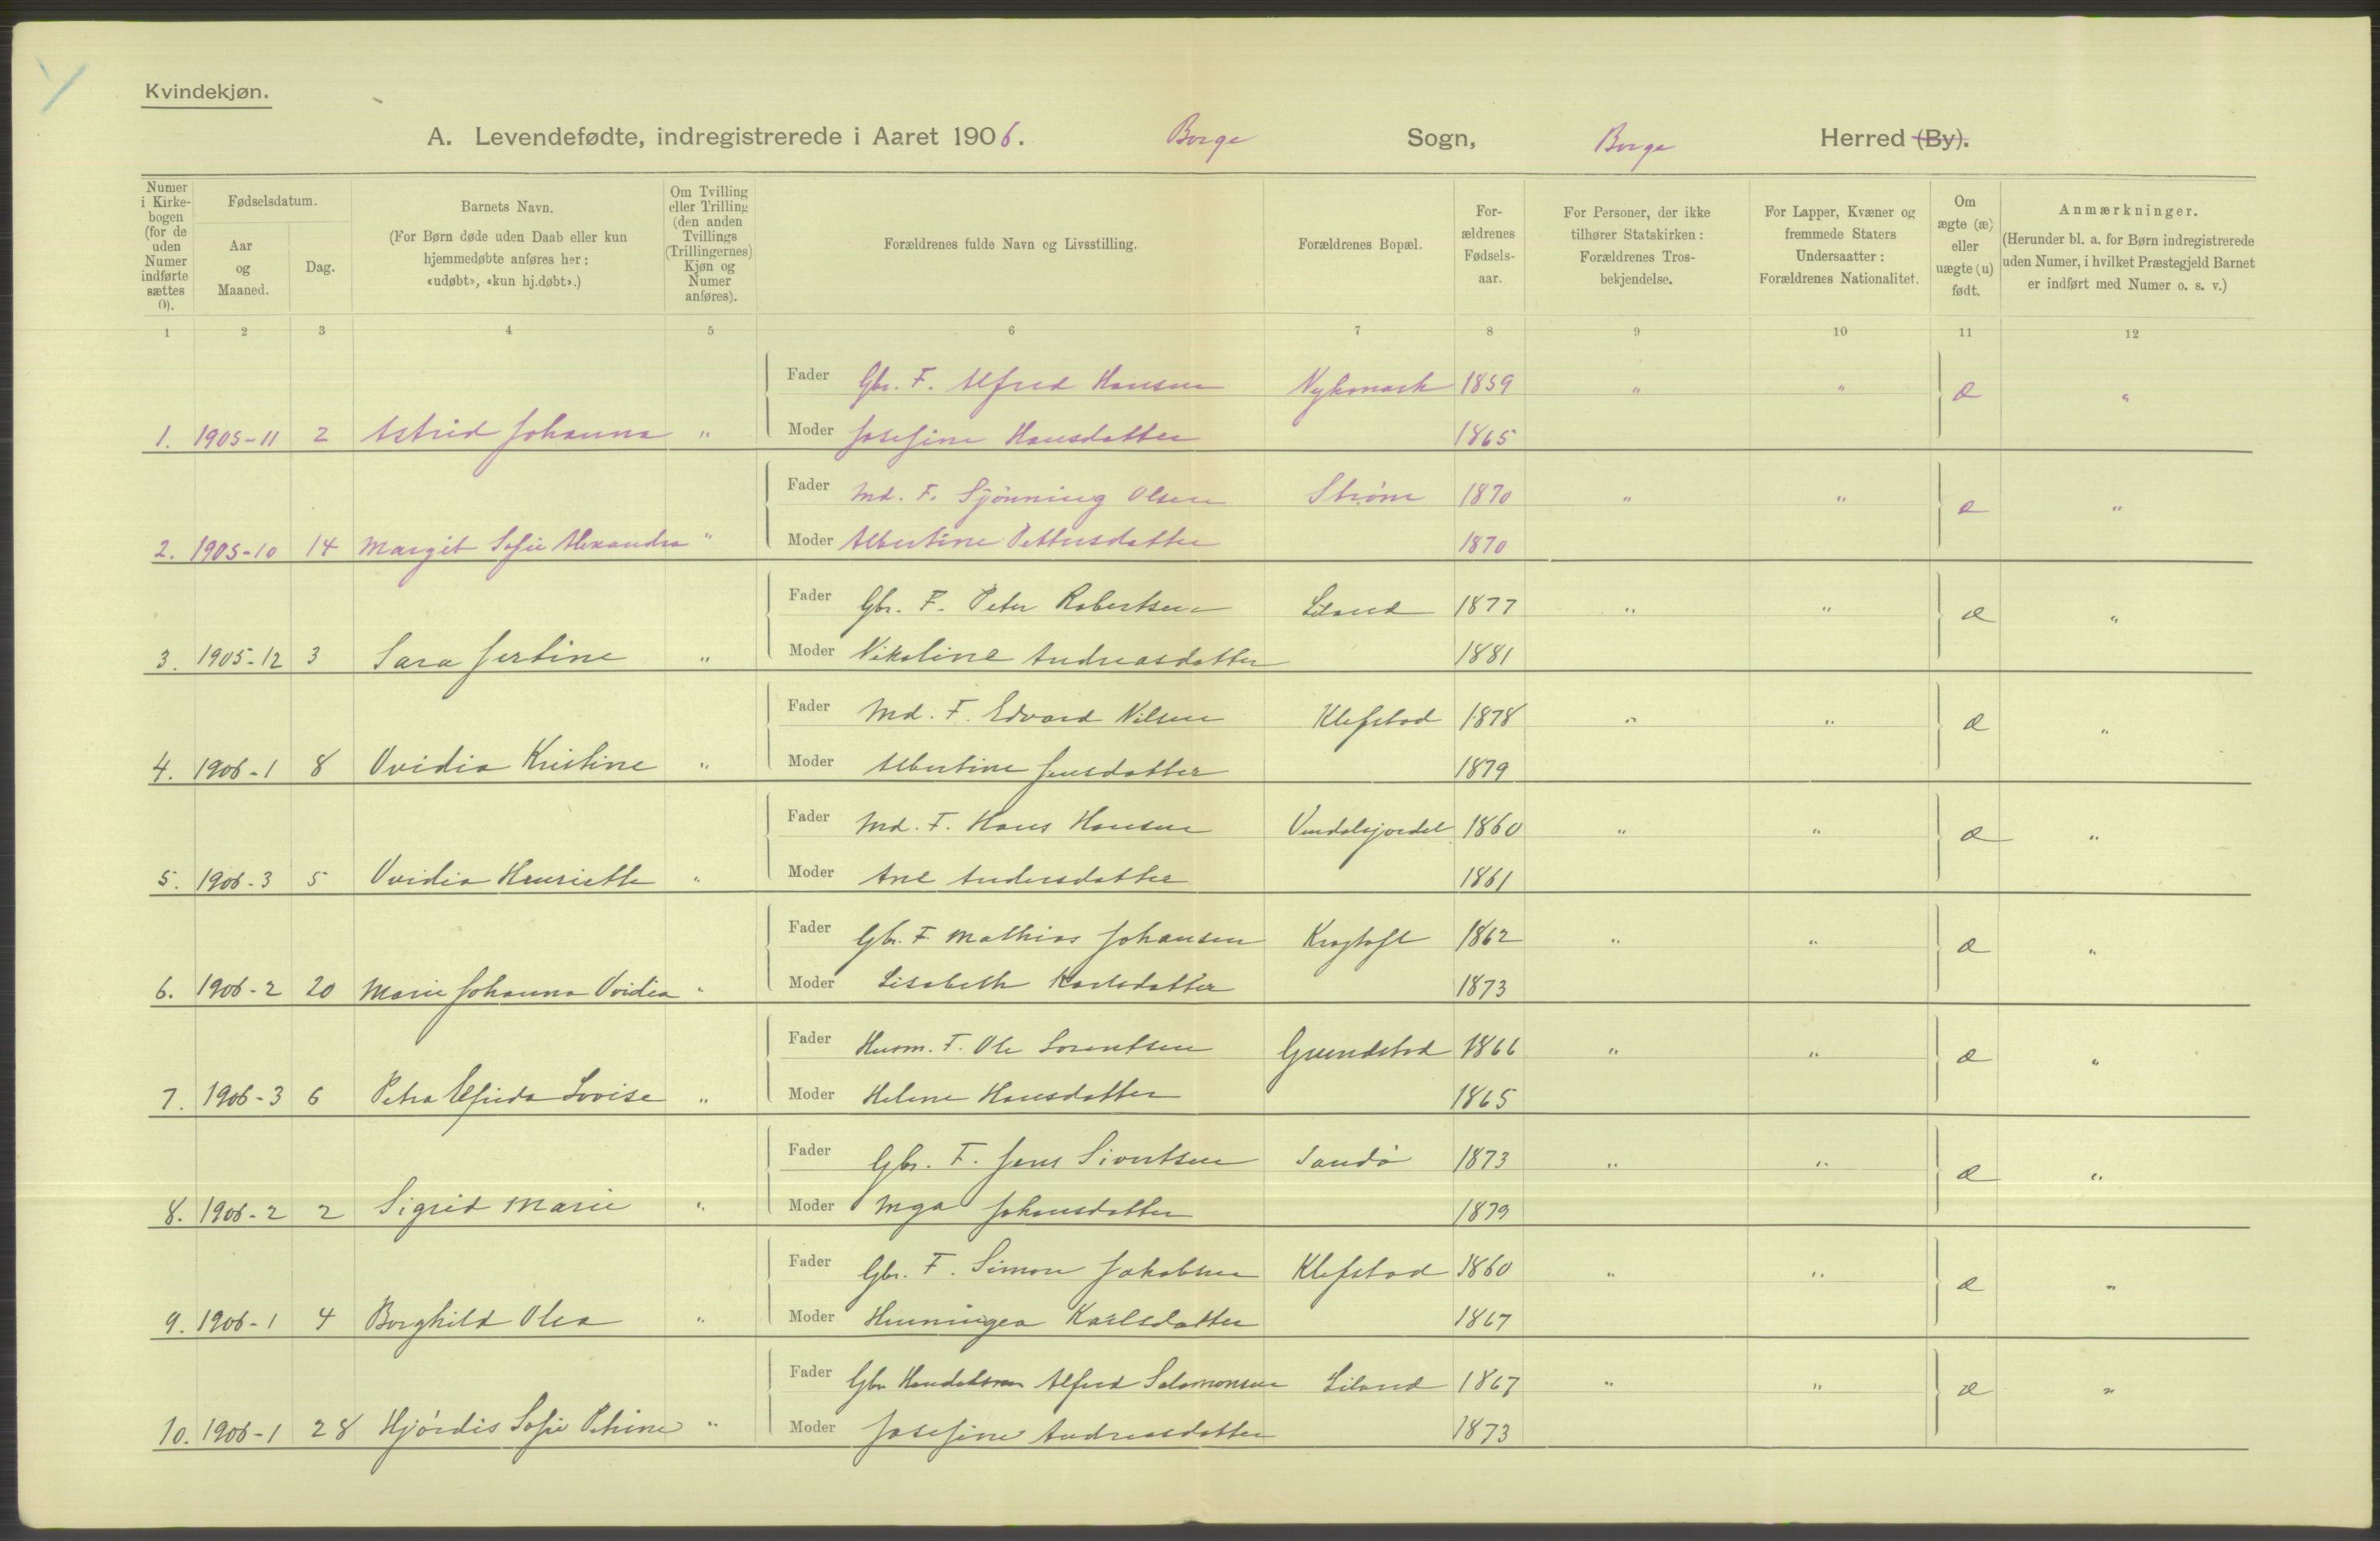 Kvindekjøn.
A. Levendefødte, indregistrerede i Aaret 1906. Borge Sogn, Borge Herred (By).
Numer i Kirkebogen (for de uden Numer indførte sættes 0).
Fødselsdatum.
Aar og Maaned.
Dag.
Barnets Navn.
(For Børn døde uden Daab eller kun hjemmedøbte anføres her: «udøbt», «kun hj.døbt».)
Om Tvilling eller Trilling (den anden Tvillings (Trillingernes) Kjøn og Numer anføres).
Forældrenes fulde Navn og Livsstilling.
Forældrenes Bopæl.
Forældrenes Fødselsaar.
For Personer, der ikke tilhører Statskirken: Forældrenes Trosbekjendelse.
For Lapper, Kvæner og fremmede Staters Undersaatter: Forældrenes Nationalitet.
Om ægte (æ) eller uægte (u) født.
Anmærkninger.
(Herunder bl. a. for Børn indregistrerede uden Numer, i hvilket Præstegjeld Barnet er indført med Numer o. s. v.)
1 2 3 4 5 6 7 8 9 10 11 12
Fader Gbr. F. Alfred Hansen Nykmark 1859 " " æ "
1. 1905-11 2 Astrid Johanna " Moder Josefine Hansdatter 1865
Fader Md. F. Sjønning Olsen Strøm 1870 " " æ "
2. 1905-10 14 Margit Sofie Alexandra " Moder Albertine Pettersdatter 1870
Fader Gbr. F. Peter Robertsen Liland 1877 " " æ "
3. 1905-12 3 Sara Jertine " Moder Nikoline Andreasdatter 1881
Fader Md. F. Edvard Nilsen Klefstad 1878 " " æ "
4. 1906-1 8 Ovidia Kristine " Moder Albertine Jensdatter 1879
Fader Md. F. Hans Hansen 1860 " " æ "
5. 1906-3 5 Ovidia Henriette " Moder Ane Andersdatter 1861
Fader Gbr. F. Mathias Johansen 1862 " " æ "
6. 1906-2 20 Marie Johanna Ovidia " Moder Lisabeth Karlsdatter 1873
Fader Husm. F. Ole Lorentsen Grundstad 1866 " " æ "
7. 1906-3 6 Petra Alfrida Lovise " Moder Helene Hansdatter 1865
Fader Gbr. F. Jens Sivertsen Sandø 1873 " " æ "
8. 1906-2 2 Sigrid Marie " Moder Inga Johansdatter 1879
Fader Gbr. F. Simon Jakobsen Klefstad 1860 " " æ "
9. 1906-1 4 Borghild Olea " Moder Henningea Karlsdatter 1867
Fader Gbr Handelsman Alfred Salamonsen Liland 1867 " " æ "
10. 1906-1 28 Hjørdis Sofie Petrine " Moder Josefine Andreasdatter 1873